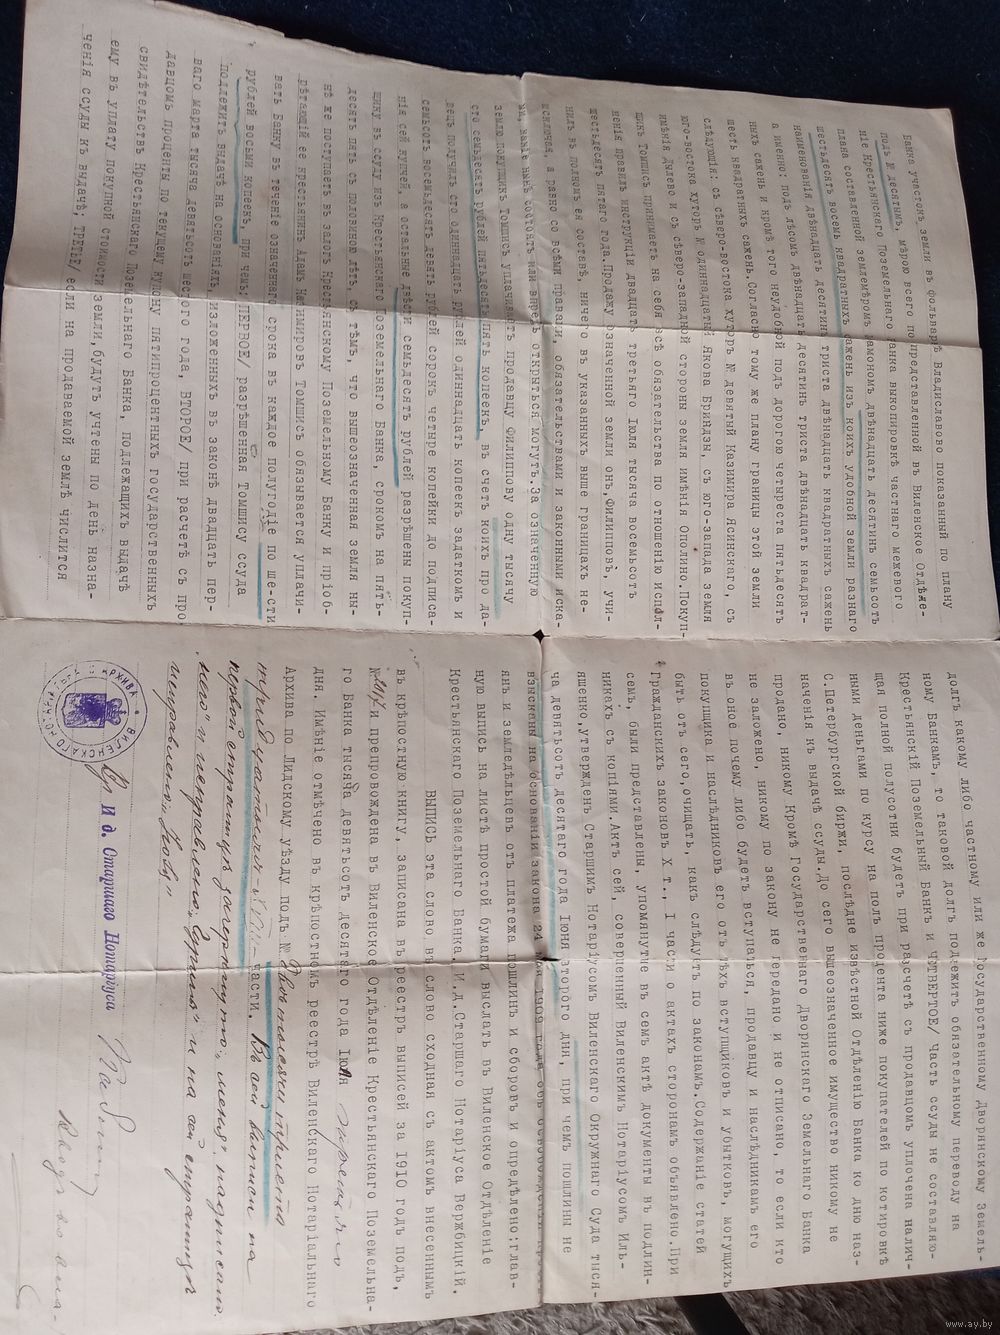 Банка участокъ земли въ фольваркѣ Владиславово показанный по плану
подъ № десятымъ, мѣрою всего по представленной въ Виленское Отдѣле-
ніе Крестьянскаго Поземельнаго Банка выкопировкѣ частнаго межевого
плана составленной землемѣромъ двѣнадцать десятинъ семьсотъ
шестьдесятъ восемь квадратныхъ сажень изъ коихъ удобной земли разнаго
наименованія двѣнадцать десятинъ триста двѣнадцать квадратныхъ сажень
а именно: подъ лѣсомъ двѣнадцать десятинъ триста двѣнадцать квадрат-
ныхъ сажень и кромѣ того неудобной подъ дорогою четыреста пятьдесятъ
шесть квадратныхъ сажень. Согласно тому же плану границы этой земли
слѣдующія: съ сѣверо-востока хуторъ № девятый Казимира Ясинскаго, съ
юго-востока хуторъ № одиннадцатый Якова Бриндзы, съ юго-запада земля
имѣнія Дулево и съ сѣверо-западной стороны земля имѣнія Ополино. Покуп-
щикъ Томшисъ принимаетъ на себя всѣ обязательства по отношенію испол-
ненія правилъ инструкціи двадцать третьяго Іюля тысяча восемьсотъ
шестьдесятъ пятаго года. Продажу означенной земли онъ, Филипповъ, учи-
нилъ въ полномъ ея составѣ, ничего въ указанныхъ выше границахъ не-
исключая, а равно со всѣми правами, обязательствами и законными иска-
ми, какіе нынѣ состоятъ или впредь открыться могутъ. За означенную
землю покупщикъ Томшисъ уплачиваетъ продавцу Филиппову одну тысячу
сто семьдесятъ рублей пятьдесятъ пять копеекъ, въ счетъ коихъ про да-
вецъ получилъ сто одиннадцать рублей одиннадцать копеекъ задаткомъ и
семьсотъ восемьдесятъ девять рублей сорокъ четыре копейки до подписа-
нія сей купчей, а остальные двѣсти семьдесятъ рублей разрѣшены покуп-
щику въ ссуду изъ Крестьянскаго Поземельнаго Банка, срокомъ на пять-
десятъ пять съ половиной лѣтъ, съ тѣмъ, что вышеозначенная земля ны-
нѣ же поступаетъ въ залогъ Крестьянскому Поземельному Банку и пріоб-
рѣтающій ее крестьянинъ Адамъ Казимировъ Томшисъ обязывается уплачи-
вать Банку въ теченіе означеннаго срока въ каждое полугодіе по ше-сти
рублей восьми копеекъ, при чемъ; ПЕРВОЕ/ разрѣшенная Томшису ссуда
подлежитъ выдачѣ на основаніяхъ, изложенныхъ въ законѣ двадцать пер-
ваго марта тысяча девятьсотъ шестого года, ВТОРОЕ/ при расчетѣ съ про
давцомъ проценты по текущему купону пятипроцентныхъ государственныхъ
свидѣтельствъ Крестьянскаго Поземельнаго Банка, подлежащихъ выдачѣ
ему въ уплату покупной стоимости земли, будутъ учтены по день назна-
ченія ссуды къ выдачѣ; ТРЕТЬЕ/ если на продаваемой землѣ числится
долгъ какому либо частному или же Государственному Дворянскому Земель-
ному Банкамъ, то таковой долгъ подлежитъ обязательному переводу на
Крестьянскій Поземельный Банкъ и ЧЕТВЕРТОЕ/ часть ссуды не составляю-
щая полной полусотни будетъ при разсчетѣ съ продавцомъ уплочена налич-
ными деньгами по курсу на полъ процента ниже покупателей по котировкѣ
С. Петербургской биржи, послѣдне извѣстной Отдѣленію Банка ко дню наз-
наченія къ выдачѣ ссуды. До сего вышеозначенное имущество никому не
продано, никому кромѣ Государственнаго Дворянскаго Земельнаго Банка
не заложено, никому по закону не передано и не отписано, то если кто
въ оное почему либо будетъ вступаться, продавцу и наслѣдникамъ его
покупщика и наслѣдниковъ его отъ тѣхъ вступщиковъ и убытковъ, могущихъ
быть отъ сего, очищать, какъ слѣдуетъ по законамъ. Содержаніе статей
Гражданскихъ законовъ X т., I части о актахъ сторонамъ объявлено. При
семъ, были представлены, упомянутые въ семъ актѣ документы въ подлин-
никахъ съ копіями. Актъ сей, совершенный Виленскимъ Нотаріусомъ Иль-
яшенко, утвержденъ Старшимъ Нотаріусомъ Виленскаго Окружнаго Суда тыся-
ча девятьсотъ десятаго года Іюня второго дня, при чемъ пошлины не
взысканы на основаніи закона 24 мая 1909 года объ освобожденіи крес-
янъ и земледѣльцевъ отъ платежа пошлинъ и сборовъ и опредѣлено; глав-
ную выпись на листѣ простой бумаги выслать въ Виленское Отдѣленіе
Крестьянскаго Поземельнаго Банка. И.д. Старшаго Нотаріуса Вержбицкій.
ВЫПИСЬ эта слово въ слово сходная съ актомъ внесеннымъ
въ крѣпостную книгу, записана въ реестръ выписей за 1910 годъ подъ,
№ и препровождена въ Виленское Отдѣленіе Крестьянскаго Поземельна-
го Банка тысяча девятьсотъ десятаго года Іюня
дня. Имѣніе отмѣчено въ крѣпостномъ реестрѣ Виленскаго Нотаріальнаго
Архива по Лидскому уѣзду подъ № двѣ тысячи триста
части. Въ сей выписи на
первой страницѣ зачеркнуто: надписано:
и на сей страницѣ
исправлено:
И д. Старшаго Нотаріуса
АРХИВА ВИЛЕНСКАГО